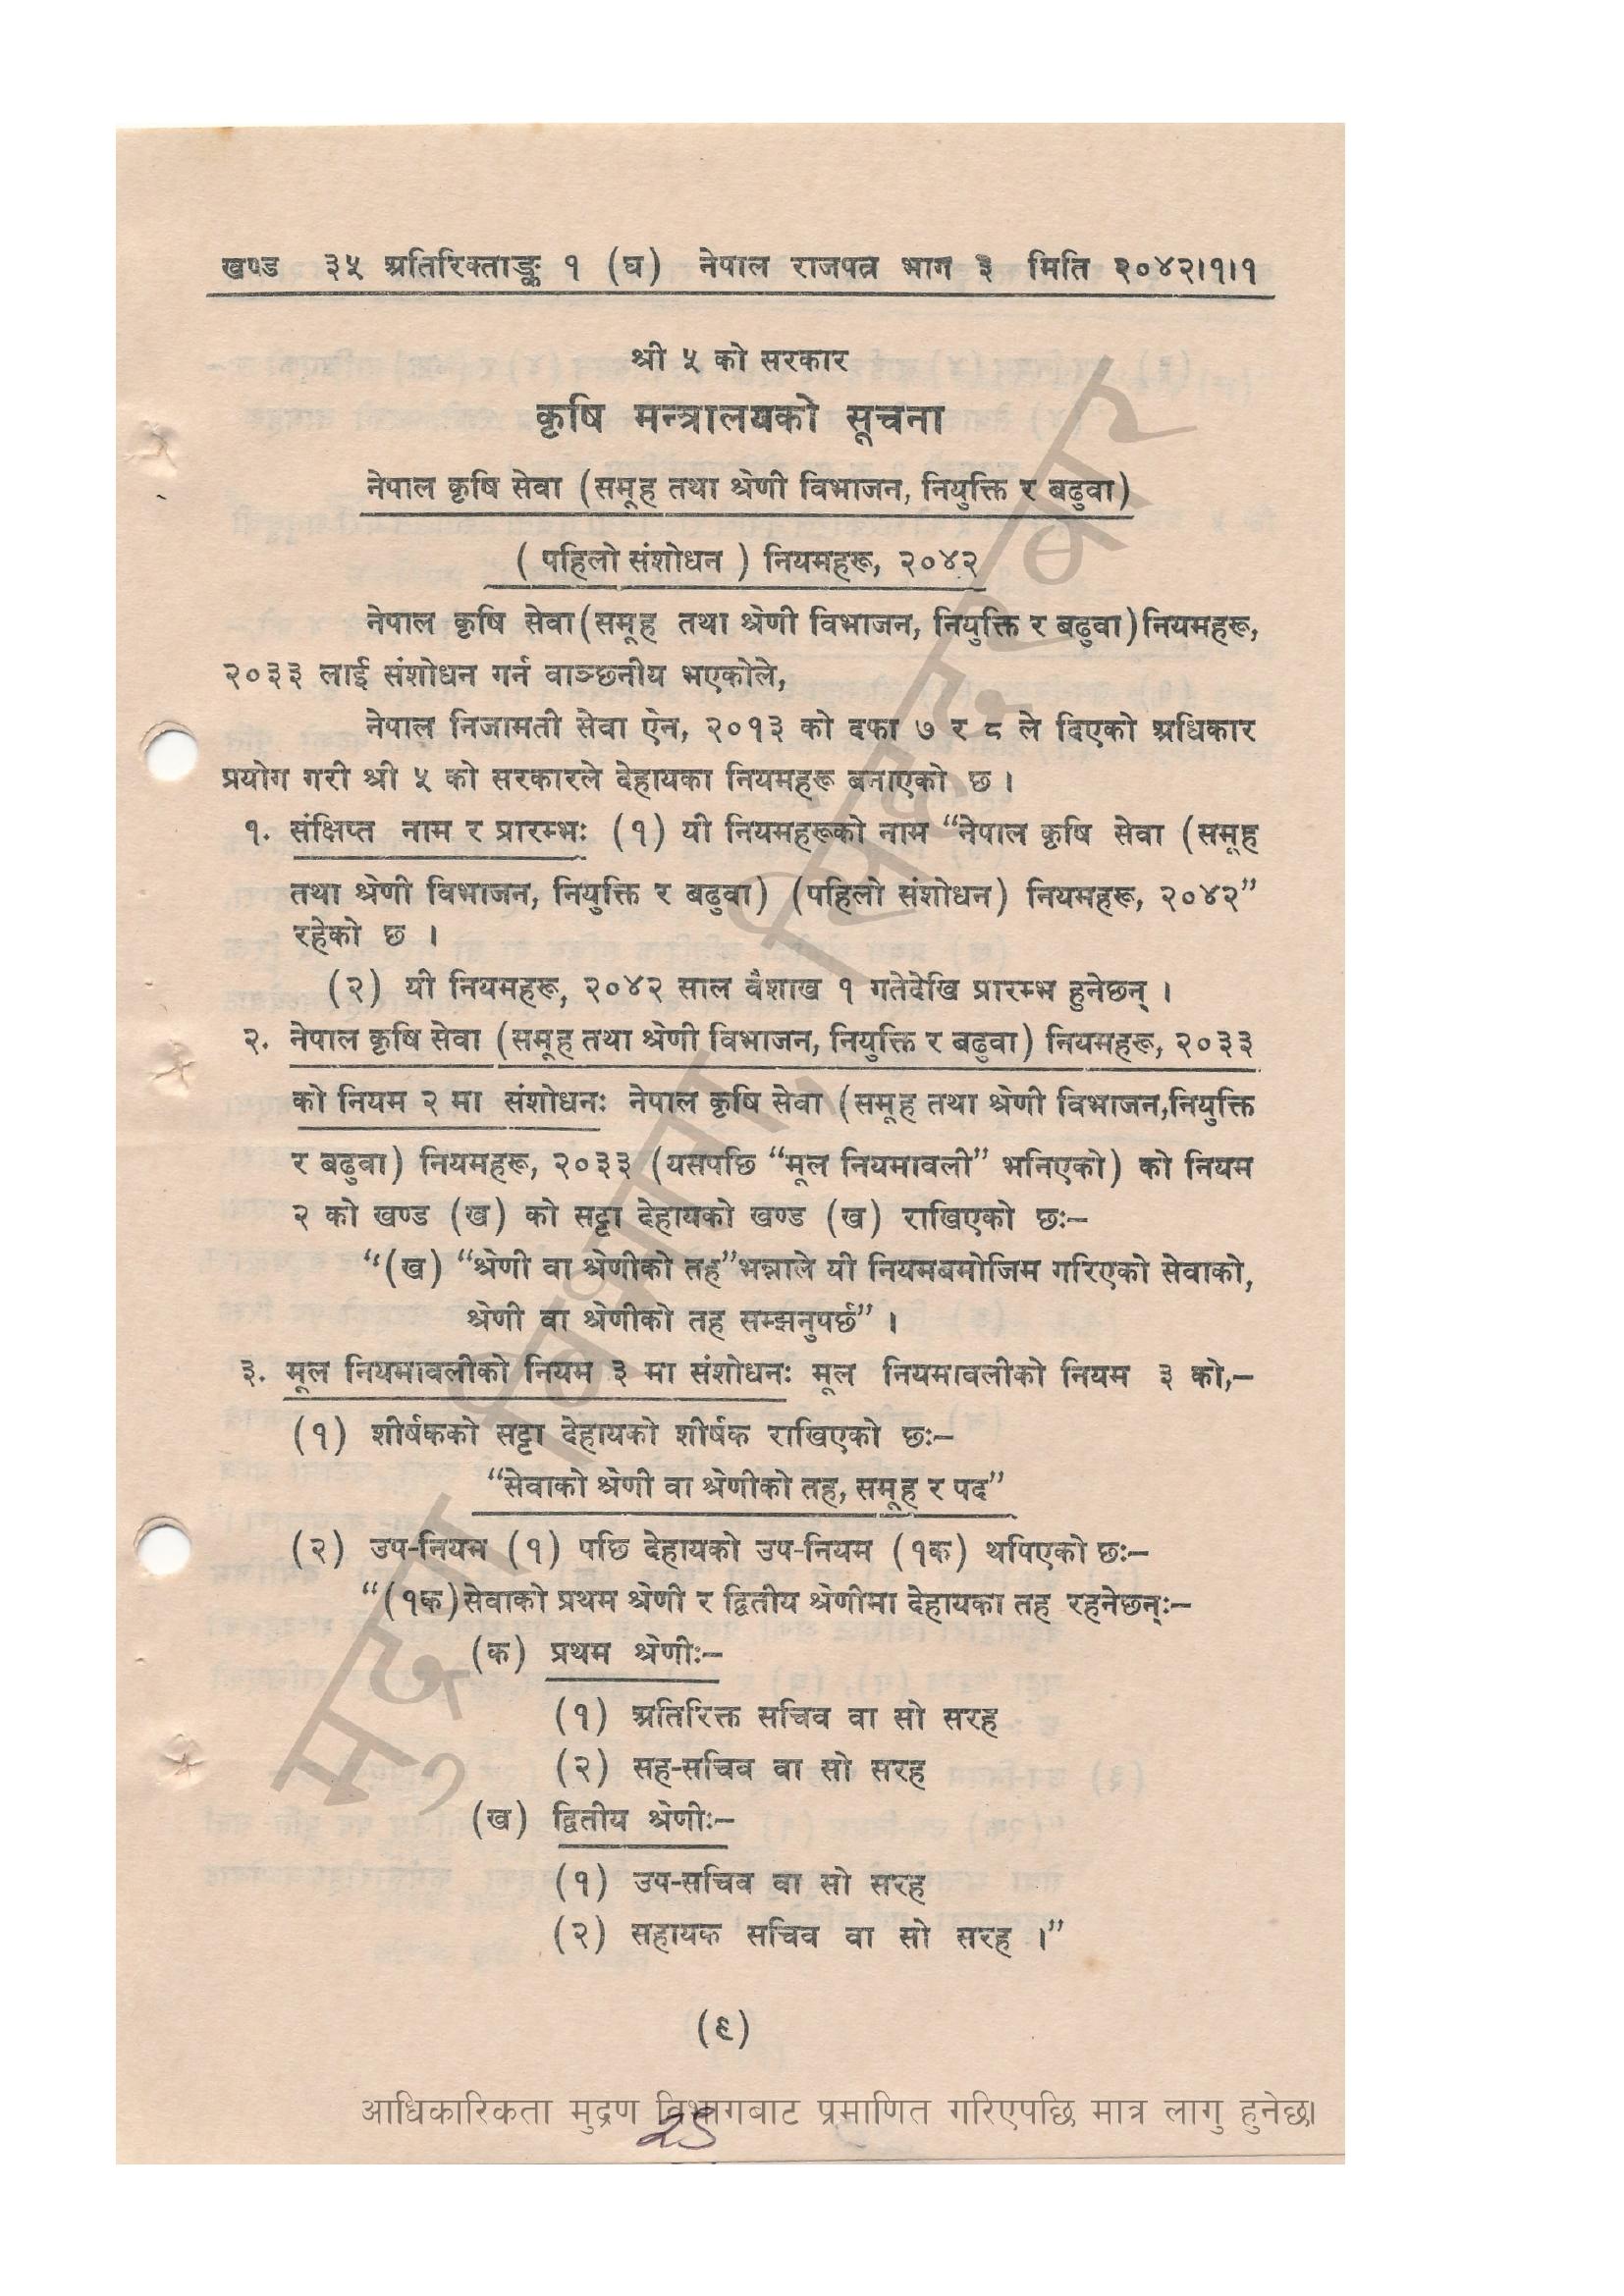 खण्ड ३५ अतिरिक्ताङ्क १ (घ) नेपाल राजपत्र भाग ३ मिति २०४२।१।१
श्री ५ को सरकार
कृषि मन्त्रालयको सूचना
नेपाल कृषि सेवा (समूह तथा श्रेणी विभाजन, नियुक्ति र बढुवा)
( पहिलो संशोधन ) नियमहरू, २०४२
नेपाल कृषि सेवा (समूह तथा श्रेणी विभाजन, नियुक्ति र बढुवा) नियमहरू,
२०३३ लाई संशोधन गर्न वाञ्छनीय भएकोले,
नेपाल निजामती सेवा ऐन, २०१३ को दफा ७ र ८ ले दिएको अधिकार
प्रयोग गरी श्री ५ को सरकारले देहायका नियमहरू बनाएको छ ।
१. संक्षिप्त नाम र प्रारम्भः (१) यी नियमहरूको नाम “नेपाल कृषि सेवा (समूह
तथा श्रेणी विभाजन, नियुक्ति र बढुवा) (पहिलो संशोधन) नियमहरू, २०४२”
रहेको छ ।
(२) यी नियमहरू, २०४२ साल बैशाख १ गतेदेखि प्रारम्भ हुनेछन् ।
२. नेपाल कृषि सेवा (समूह तथा श्रेणी विभाजन, नियुक्ति र बढुवा) नियमहरू, २०३३
को नियम २ मा संशोधनः नेपाल कृषि सेवा (समूह तथा श्रेणी विभाजन,नियुक्ति
र बढुवा) नियमहरू, २०३३ (यसपछि “मूल नियमावली” भनिएको) को नियम
२ को खण्ड (ख) को सट्टा देहायको खण्ड (ख) राखिएको छः–
“(ख) “श्रेणी वा श्रेणीको तह” भन्नाले यी नियमबमोजिम गरिएको सेवाको,
श्रेणी वा श्रेणीको तह सम्झनुपर्छ” ।
३. मूल नियमावलीको नियम ३ मा संशोधनः मूल नियमावलीको नियम ३ को,–
(१) शीर्षकको सट्टा देहायको शीर्षक राखिएको छः–
“सेवाको श्रेणी वा श्रेणीको तह, समूह र पद”
(२) उप-नियम (१) पछि देहायको उप-नियम (१क) थपिएको छः–
“(१क) सेवाको प्रथम श्रेणी र द्वितीय श्रेणीमा देहायका तह रहनेछन्ः–
(क) प्रथम श्रेणीः–
(१) अतिरिक्त सचिव वा सो सरह
(२) सह-सचिव वा सो सरह
(ख) द्वितीय श्रेणीः–
(१) उप-सचिव वा सो सरह
(२) सहायक सचिव वा सो सरह ।”
(९)
आधिकारिकता मुद्रण विभागबाट प्रमाणित गरिएपछि मात्र लागु हुनेछ।
मुद्रण विभाग, सिंहदरबार